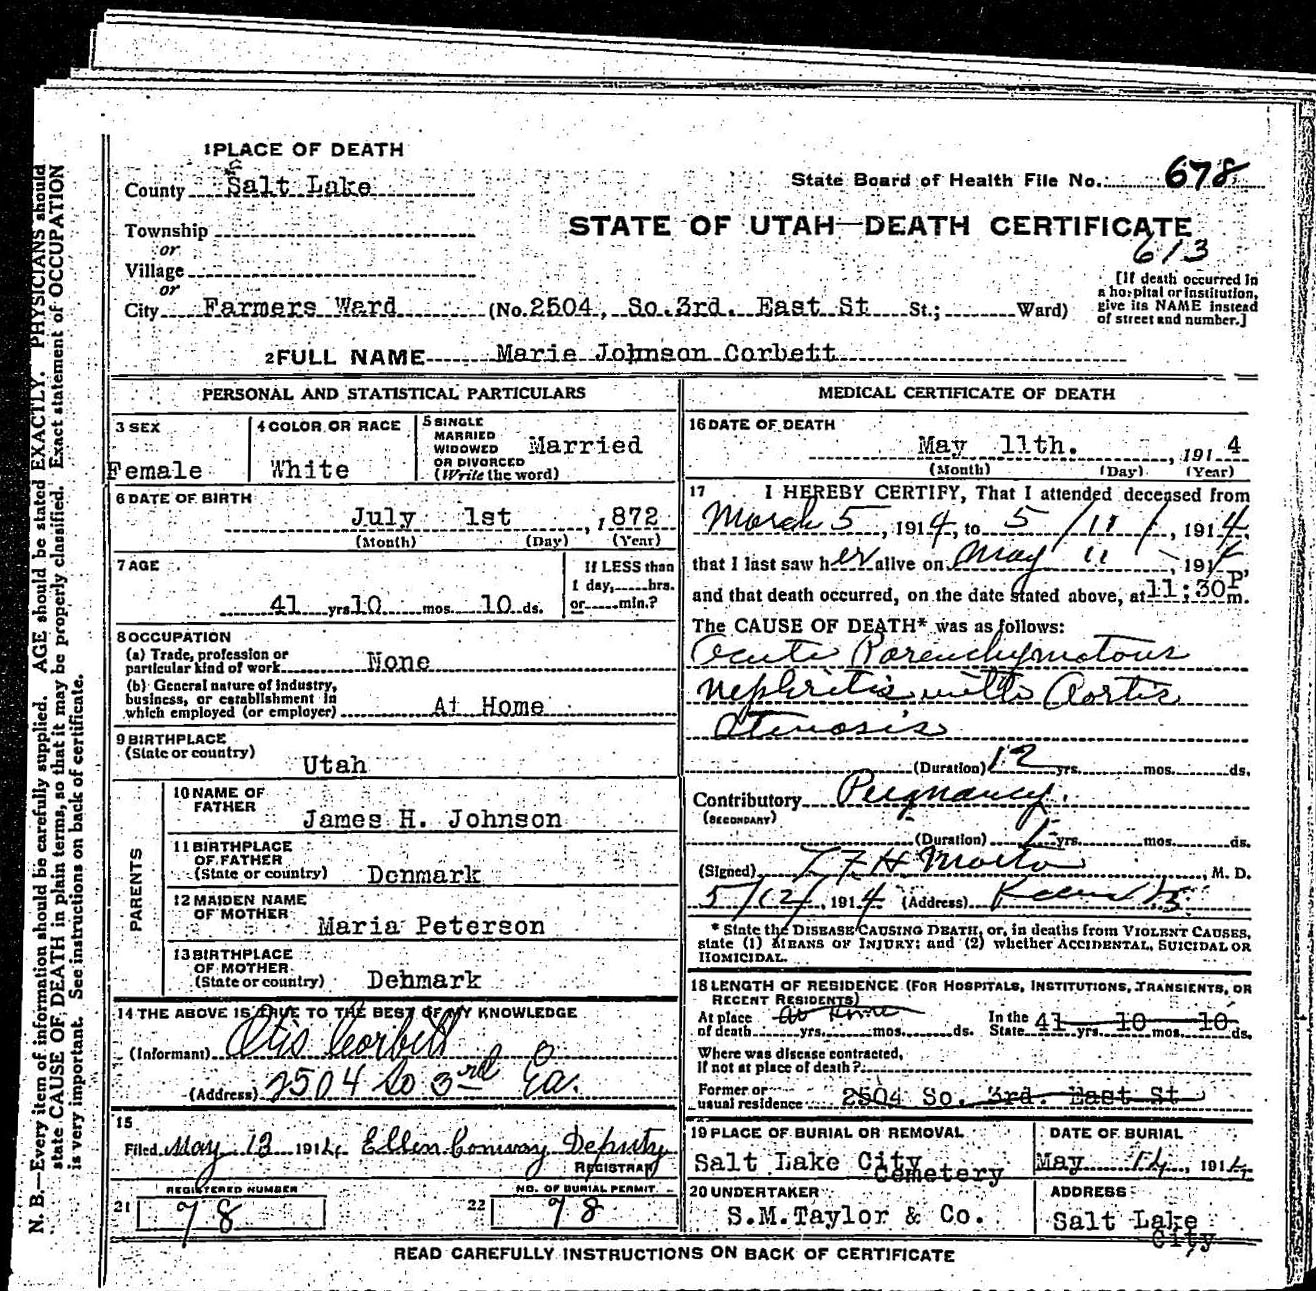 1 PLACE OF DEATH
County Salt Lake
State Board of Health File No. 678
Township
or
Village
or
STATE OF UTAH—DEATH CERTIFICATE
613
[If death occurred in a hospital or institution, give its NAME instead of street and number.]
City Farmers Ward (No. 2504, So. 3rd. East St St.; Ward)
2 FULL NAME Marie Johnson Corbett
PERSONAL AND STATISTICAL PARTICULARS
3 SEX
Female
4 COLOR OR RACE
White
5 SINGLE
MARRIED
WIDOWED
OR DIVORCED
(Write the word)
Married
6 DATE OF BIRTH
July 1st, 1872
(Month) (Day) (Year)
7 AGE
41 yrs 10 mos. 10 ds.
If LESS than
1 day, hrs.
or min.?
8 OCCUPATION
(a) Trade, profession or
particular kind of work None
(b) General nature of industry,
business, or establishment in
which employed (or employer) At Home
9 BIRTHPLACE
(State or country)
Utah
PARENTS
10 NAME OF
FATHER
James H. Johnson
11 BIRTHPLACE
OF FATHER
(State or country) Denmark
12 MAIDEN NAME
OF MOTHER
Maria Peterson
13 BIRTHPLACE
OF MOTHER
(State or country) Denmark
14 THE ABOVE IS TRUE TO THE BEST OF MY KNOWLEDGE
(Informant) Otis Corbett
(Address) 2504 So 3rd Ea.
15
Filed May 13 1914 Ellen Conway Deputy
REGISTRAR
REGISTERED NUMBER
21 78
NO. OF BURIAL PERMIT
22 78
MEDICAL CERTIFICATE OF DEATH
16 DATE OF DEATH
May 11th. , 1914
(Month) (Day) (Year)
17 I HEREBY CERTIFY, That I attended deceased from
March 5, 1914, to 5/11/, 1914
that I last saw her alive on May 11, 1914
and that death occurred, on the date stated above, at 11:30 P. m.
The CAUSE OF DEATH* was as follows:
Acute Parenchymatous
nephritis with Aortic
Stenosis
(Duration) 12 yrs. mos. ds.
Contributory Pregnancy.
(SECONDARY)
(Duration) yrs. mos. ds.
(Signed) , M. D.
5/12/, 1914 (Address)
* State the DISEASE CAUSING DEATH, or, in deaths from VIOLENT CAUSES,
state (1) MEANS OF INJURY; and (2) whether ACCIDENTAL, SUICIDAL OR
HOMICIDAL.
18 LENGTH OF RESIDENCE (FOR HOSPITALS, INSTITUTIONS, TRANSIENTS, OR
RECENT RESIDENTS)
At place
of death At Home yrs. mos. ds.
In the
State 41 yrs 10 mos. 10 ds.
Where was disease contracted,
if not at place of death?
Former or
usual residence 2504 So. 3rd. East St
19 PLACE OF BURIAL OR REMOVAL
Salt Lake City
Cemetery
DATE OF BURIAL
May 14, 1914
20 UNDERTAKER
S.M.Taylor & Co.
ADDRESS
Salt Lake
City
READ CAREFULLY INSTRUCTIONS ON BACK OF CERTIFICATE
N. B.—Every item of information should be carefully supplied. AGE should be stated EXACTLY. PHYSICIANS should
state CAUSE OF DEATH in plain terms, so that it may be properly classified. Exact statement of OCCUPATION
is very important. See instructions on back of certificate.